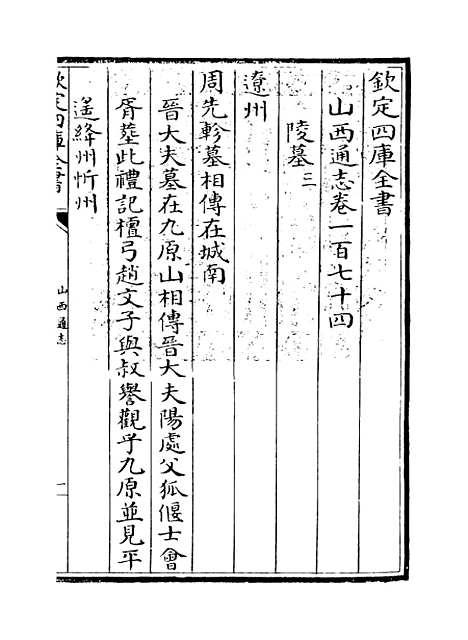 欽定四庫全書
山西通志卷一百七十四
陵墓三
遼州
周先軫墓相傳在城南
晉大夫墓在九原山相傳晉大夫陽處父狐偃士會
胥塟此禮記檀弓趙文子與叔譽觀乎九原並見平
遥絳州忻州
欽定四庫全書
山西通志
一